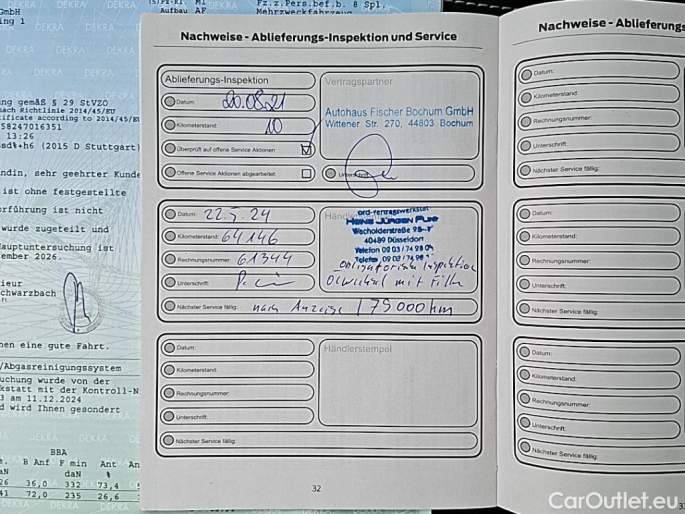 Fz.z.Pers.bef.b. 8 Spl,
Aufbau AF Mehrzweckfahrzeug
GmbH
ing 1
ung gemäß § 29 StVZO
nach Richtlinie 2014/45/EU
tificate according to 2014/45/EU
58247016351
13:26
(2015 D Stuttgart)
ndin, sehr geehrter Kunde
ist ohne festgestellte
orführung ist nicht
wurde zugeteilt und
auptuntersuchung ist
ember 2026.
ieur
chwarzbach
nen eine gute Fahrt.
/Abgasreinigungssystem
uchung wurde von der
kstatt mit der Kontroll-N
3 am 11.12.2024
d wird Ihnen gesondert
BBA
B Anf F min Ant An
daN %
26 36,0 332 73,4
41 72,0 235 26,6
DEKRA
Nachweise - Ablieferungs-Inspektion und Service
Ablieferungs-Inspektion
Datum: 20.08.21
Kilometerstand: 10
Überprüft auf offene Service Aktionen
Offene Service Aktionen abgearbeitet
Vertragspartner
Autohaus Fischer Bochum GmbH
Wittener Str. 270, 44803 Bochum
Unterschrift:
Datum: 22.5.24
Kilometerstand: 64146
Rechnungsnummer: 61344
Unterschrift:
Nächster Service fällig: nach Anzeige / 79000 km
40489 Düsseldorf
Inspektion
Ölwechsel mit Filter
Datum:
Kilometerstand:
Rechnungsnummer:
Unterschrift:
Nächster Service fällig:
Händlerstempel
32
Nachweise - Ablieferungs
Datum:
Kilometerstand:
Rechnungsnummer:
Unterschrift:
Nächster Service fällig:
Datum:
Kilometerstand:
Rechnungsnummer:
Unterschrift:
Nächster Service fällig:
Datum:
Kilometerstand:
Rechnungsnummer:
Unterschrift:
Nächster Service fällig:
CarOutlet.eu